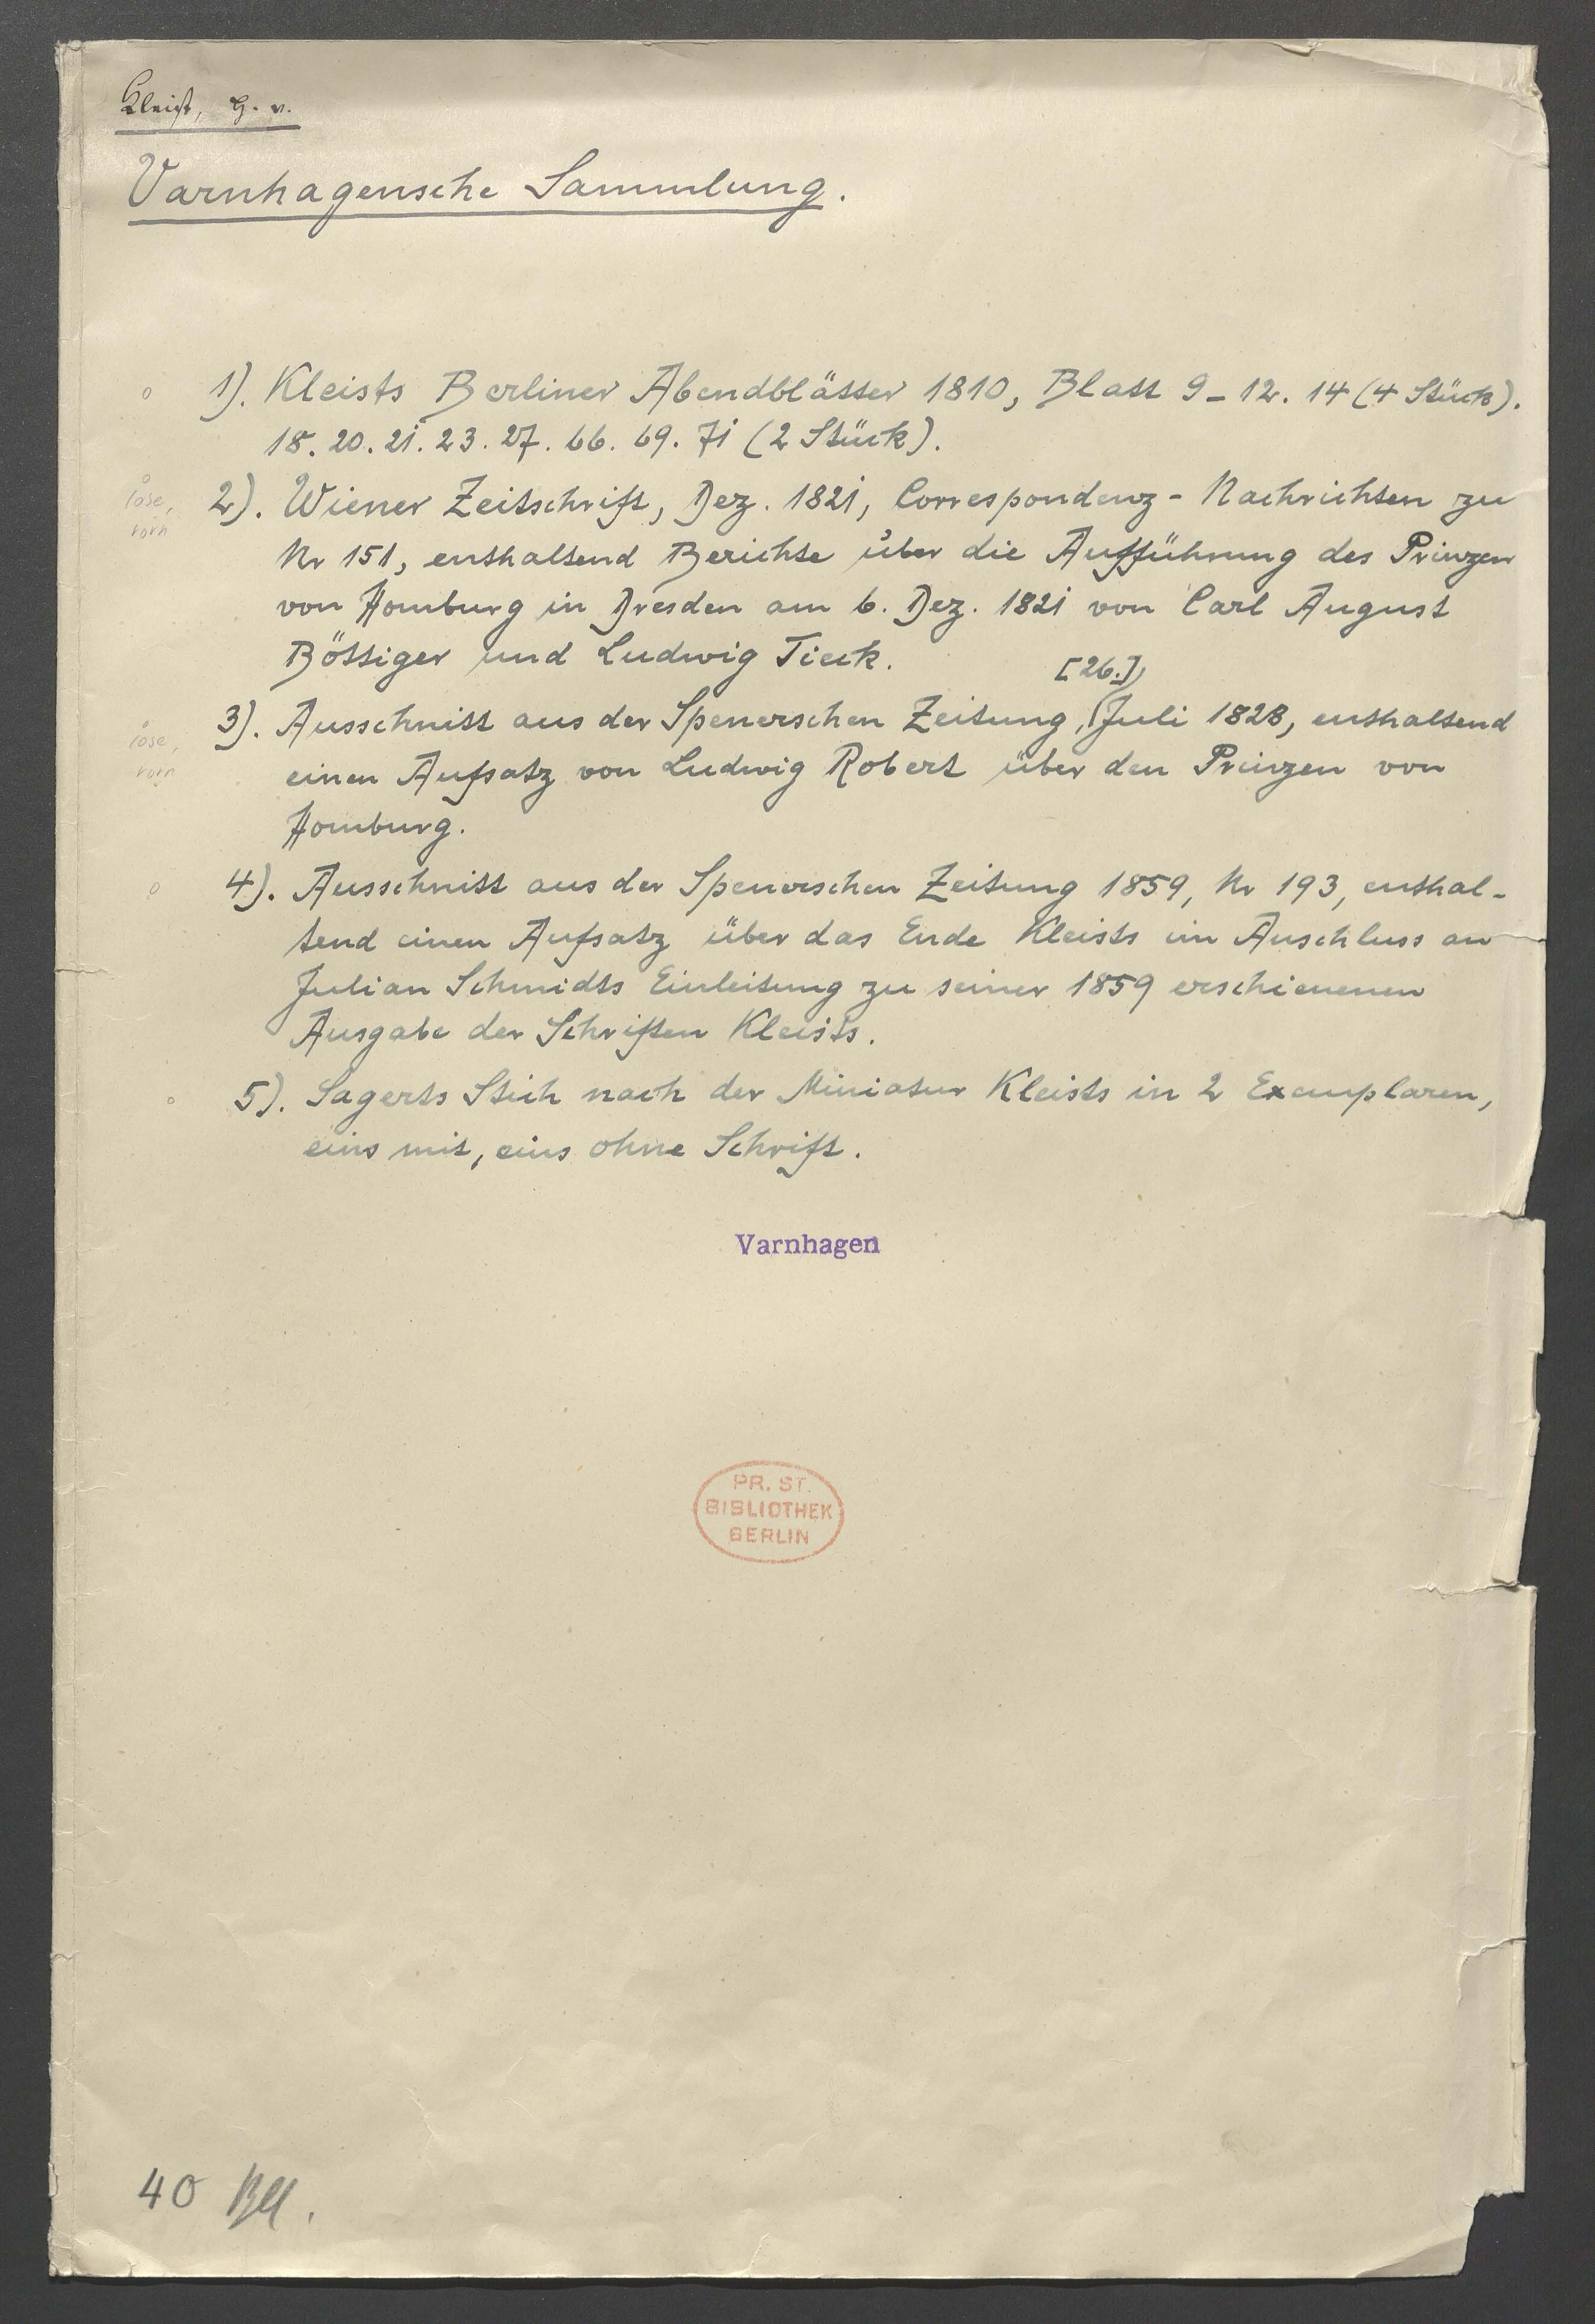 Kleist, H. v.
Varnhagensche Sammlung.
o 1). Kleists Berliner Abendblätter 1810, Blatt 9-12. 14 (4 Stück).
18. 20. 21. 23. 27. 66. 69. 71 (2 Stück).
o
lose, 2). Wiener Zeitschrift, Dez. 1821, Correspondenz-Nachrichten zu
vorn
Nr 151, enthaltend Berichte über die Aufführung des Prinzen
von Homburg in Dresden am 6. Dez. 1821 von Carl August
Böttiger und Ludwig Tieck.
[26.]
o
3). Ausschnitt aus der Spenerschen Zeitung, Juli 1828, enthaltend
lose,
vorn einen Aufsatz von Ludwig Robert über den Prinzen von
Homburg.
o 4). Ausschnitt aus der Spenerschen Zeitung 1859, Nr 193, enthal-
tend einen Aufsatz über das Ende Kleists im Anschluss an
Julian Schmidts Einleitung zu seiner 1859 erschienenen
Ausgabe der Schriften Kleists.
o 5). Sagerts Stich nach der Miniatur Kleists in 2 Exemplaren,
eins mit, eins ohne Schrift.
Varnhagen
PR. ST.
BIBLIOTHEK
BERLIN
40 Bll.